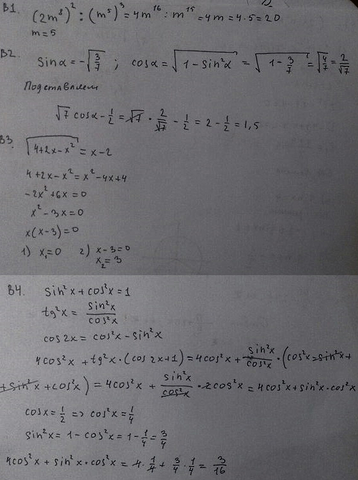 B1. (2m⁸)² : (m⁵)³ = 4m¹⁶ : m¹⁵ = 4m = 4·5 = 20
m = 5
B2. sinα = -√(3/7) ; cosα = √(1 - sin²α) = √(1 - 3/7) = √(4/7) = 2/√7
Подставляем
√7 cosα - 1/2 = √7 · 2/√7 - 1/2 = 2 - 1/2 = 1,5
B3. √(4+2x-x²) = x-2
4+2x-x² = x²-4x+4
-2x²+6x=0
x²-3x=0
x(x-3)=0
1) x₁=0 2) x-3=0
x₂=3
B4. sin²x+cos²x=1
tg²x = sin²x/cos²x
cos2x = cos²x - sin²x
4cos²x + tg²x · (cos2x+1) = 4cos²x + sin²x/cos²x · (cos²x - sin²x +
+ sin²x + cos²x) = 4cos²x + sin²x/cos²x · 2cos²x = 4cos²x + sin²x · cos²x
cosx = 1/2 => cos²x = 1/4
sin²x = 1 - cos²x = 1 - 1/4 = 3/4
4cos²x + sin²x · cos²x = 4 · 1/4 + 3/4 · 1/4 = 3/16